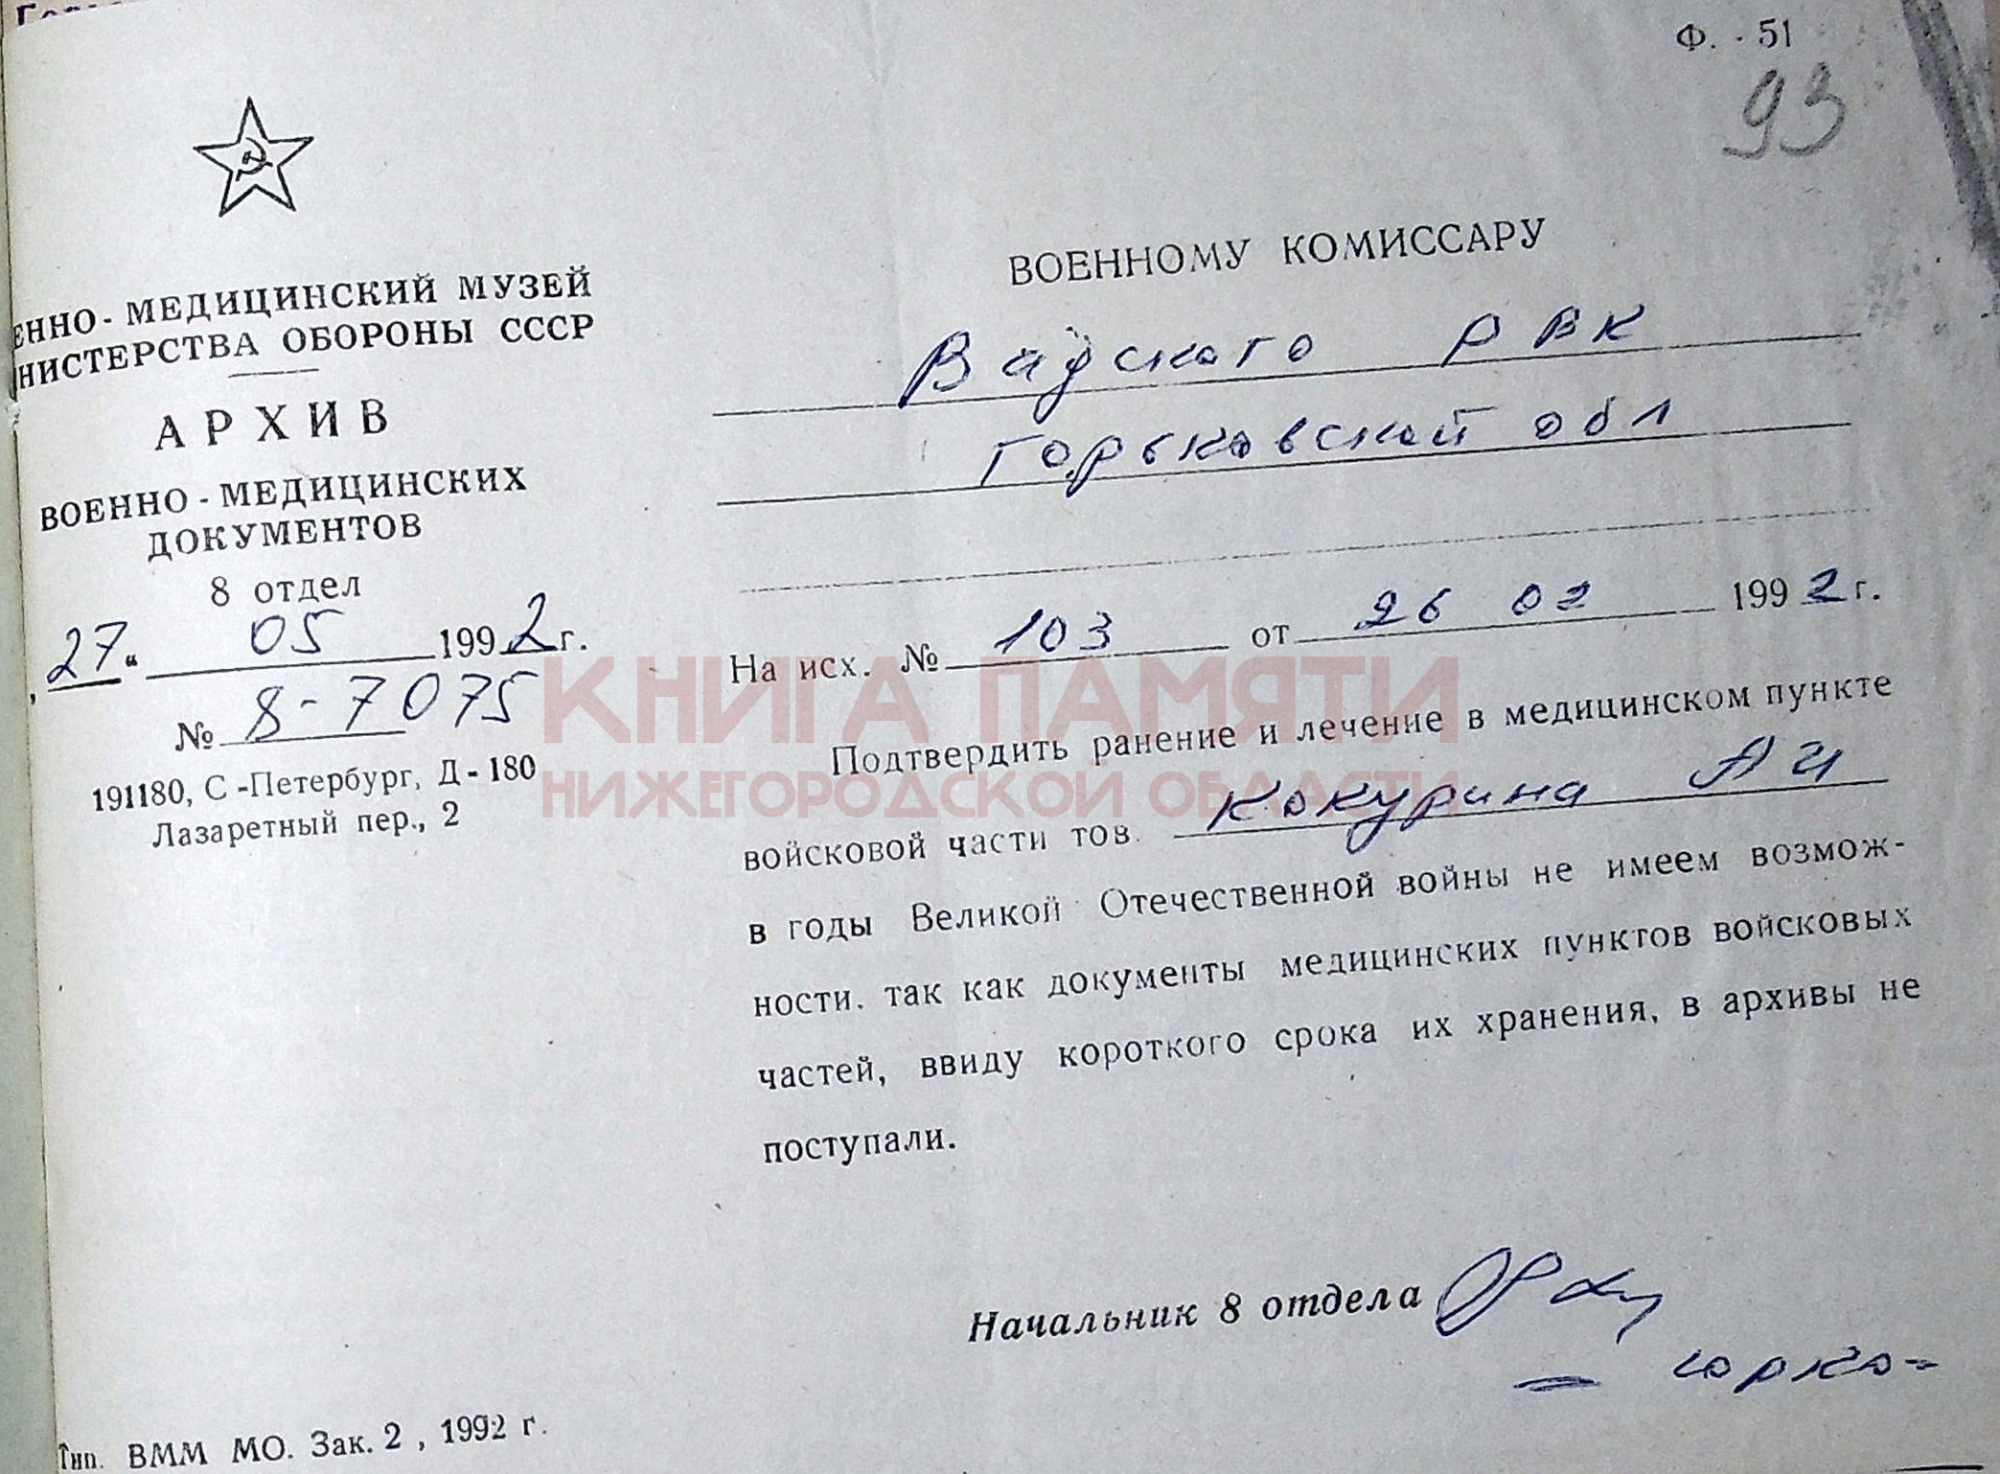 Ф. - 51
93
ЕННО - МЕДИЦИНСКИЙ МУЗЕЙ
НИСТЕРСТВА ОБОРОНЫ СССР
АРХИВ
ВОЕННО - МЕДИЦИНСКИХ
ДОКУМЕНТОВ
8 отдел
„27“ 05 1992 г.
№ 8-7075
191180, С -Петербург, Д - 180
Лазаретный пер., 2
ВОЕННОМУ КОМИССАРУ
Вадского РВК
Горьковской обл
На исх. № 103 от 26 02 1992 г.
Подтвердить ранение и лечение в медицинском пункте
войсковой части тов. Кокурина А И
в годы Великой Отечественной войны не имеем возмож-
ности. так как документы медицинских пунктов войсковых
частей, ввиду короткого срока их хранения, в архивы не
поступали.
Начальник 8 отдела
Тип. ВММ МО. Зак. 2 , 1992 г.
КНИГА ПАМЯТИ
НИЖЕГОРОДСКОЙ ОБЛАСТИ